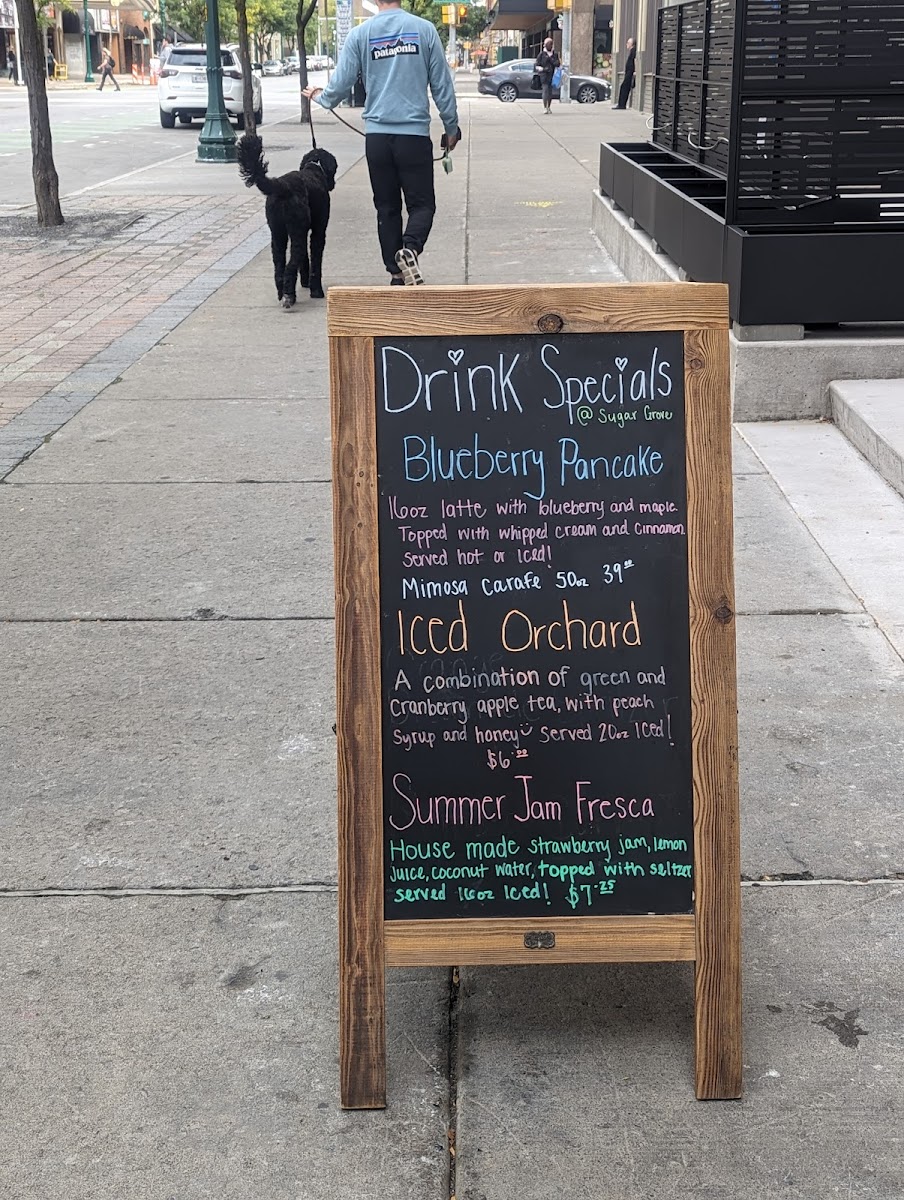 patagonia
Drink Specials
@ Sugar Grove
Blueberry Pancake
16oz latte with blueberry and maple.
Topped with whipped cream and cinnamon.
Served hot or Iced!
Mimosa Carafe 50oz 39.00
Iced Orchard
A combination of green and
cranberry apple tea, with peach
syrup and honey served 20oz Iced!
$6.00
Summer Jam Fresca
House made strawberry jam, lemon
juice, coconut water, topped with seltzer
served 16oz Iced! $7.25